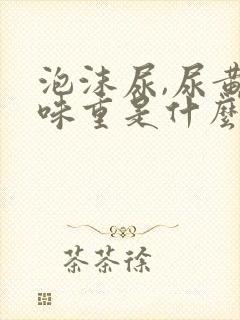 泡沫尿,尿黄
味重是什麼
茶茶徐